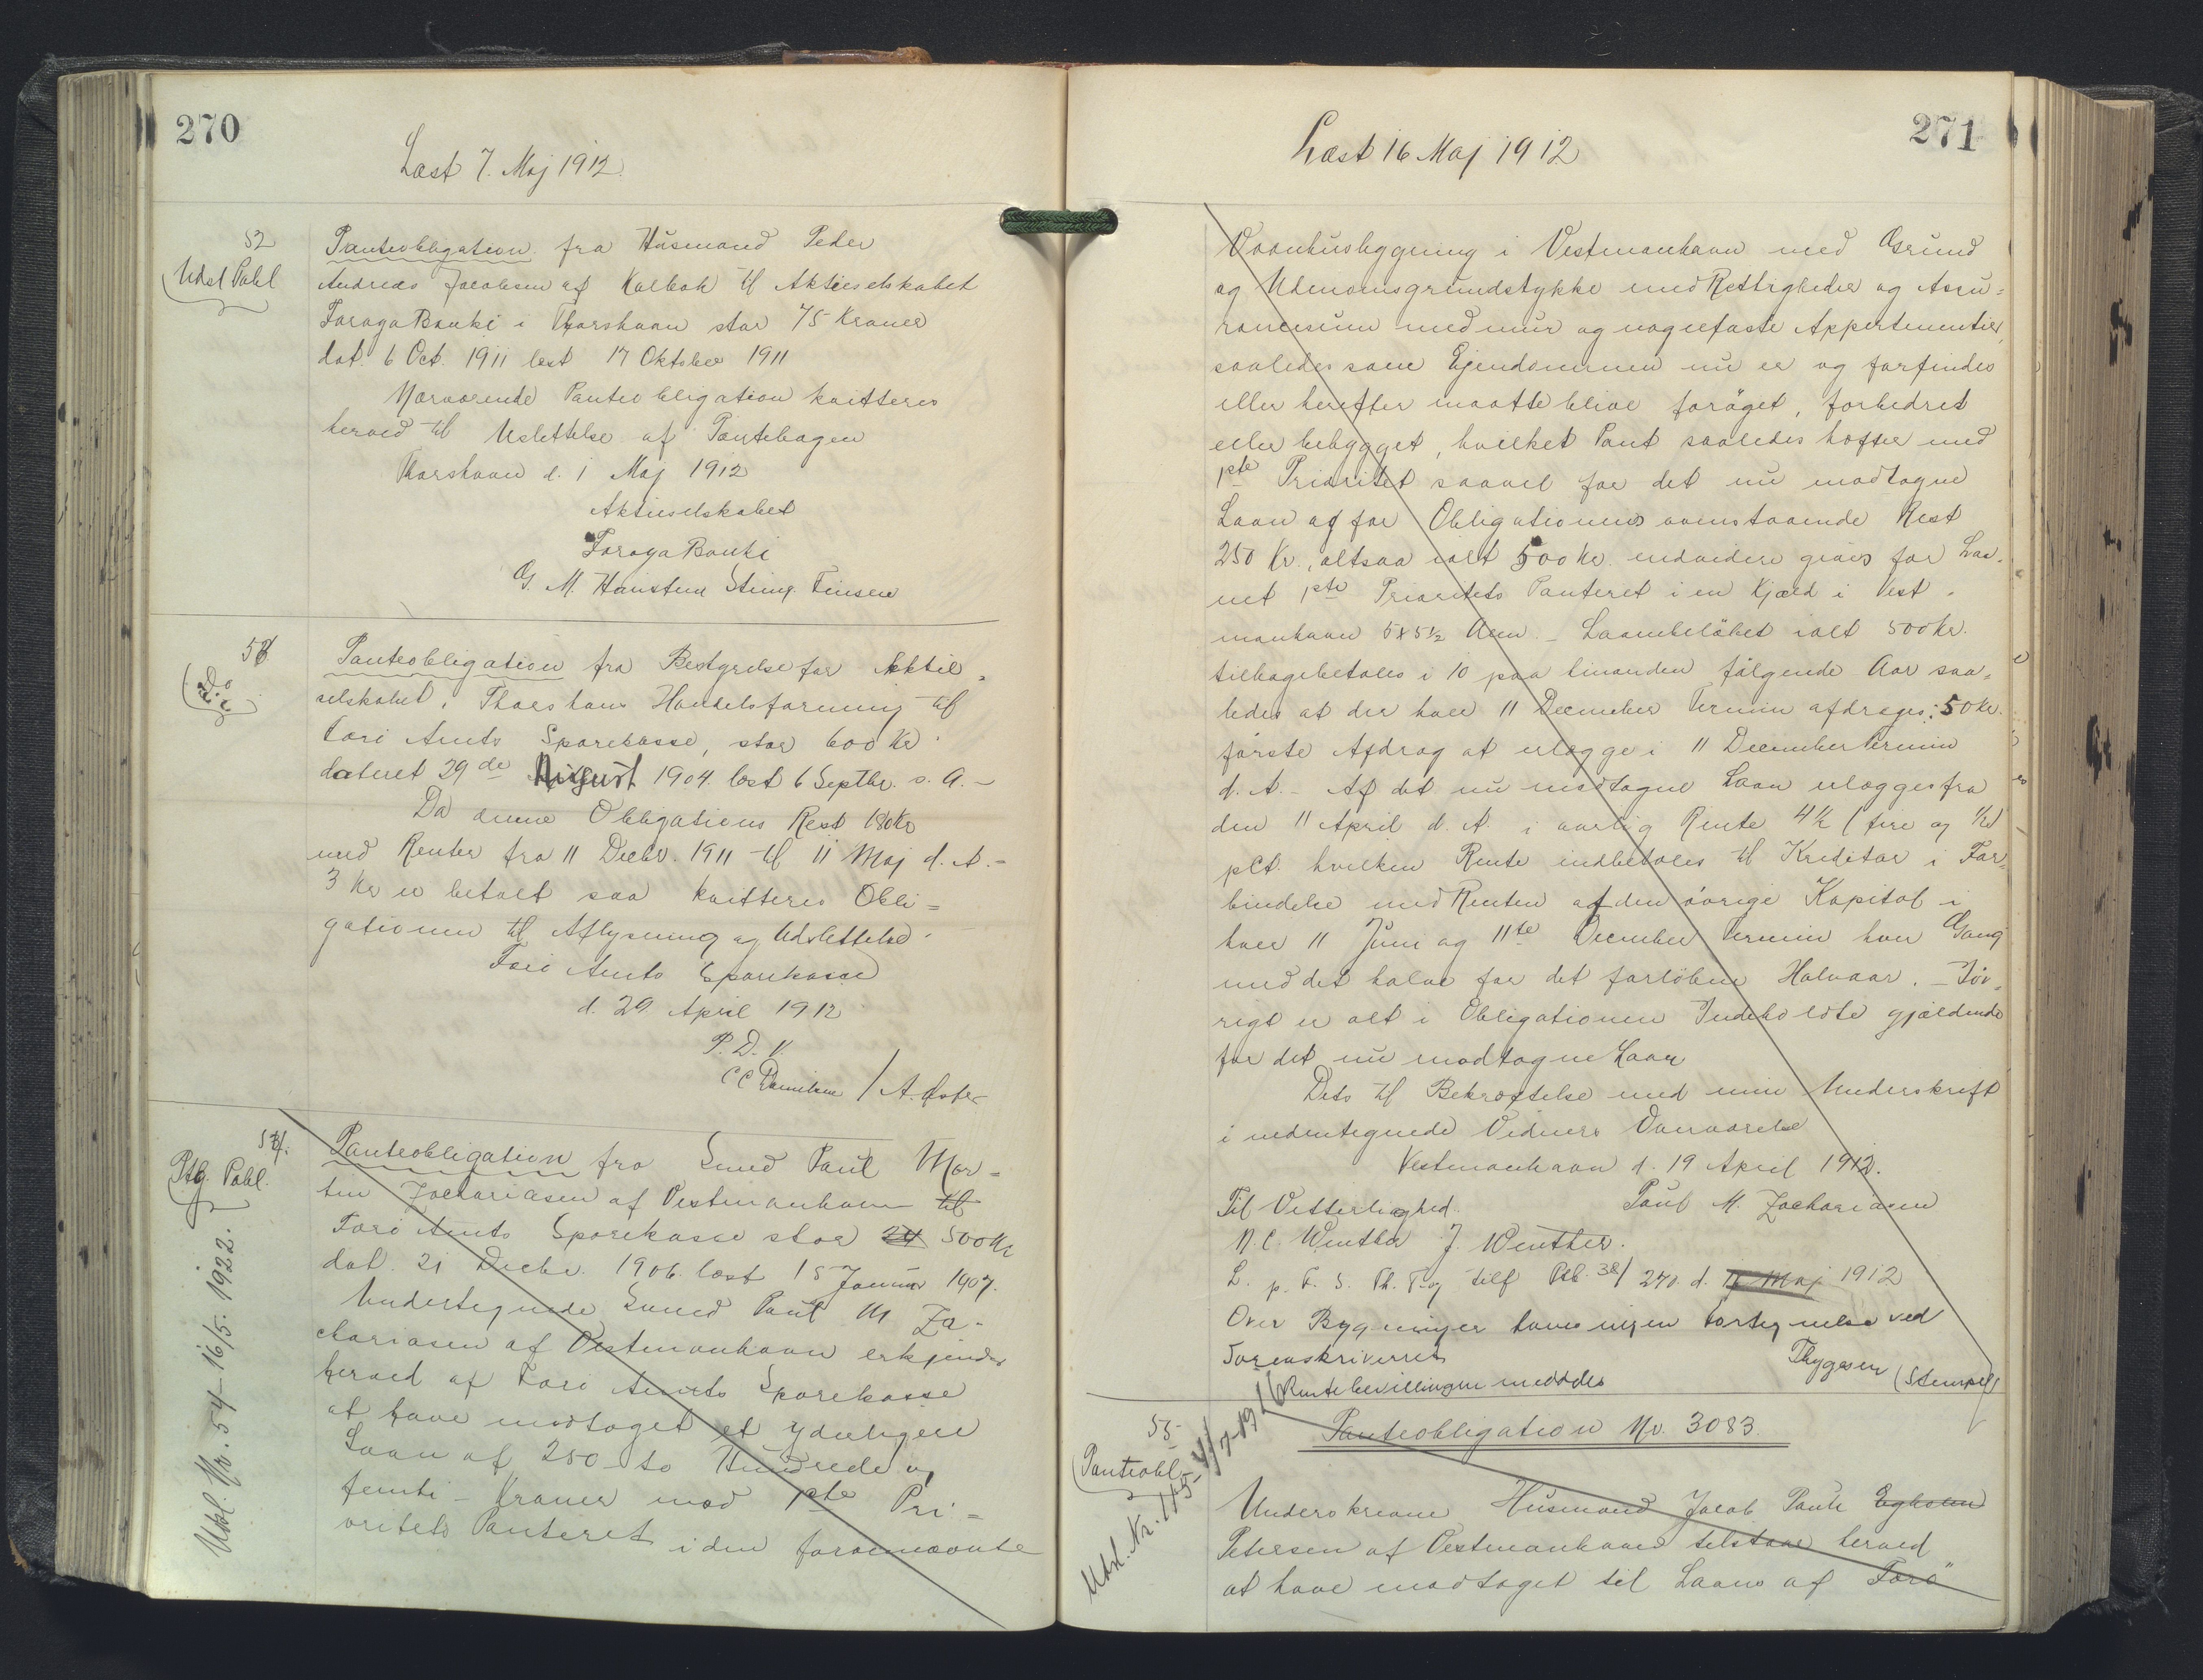 270
Læst 7. Maj 1912.
52
Udsl Pobl
Panteobligation fra Husmand Peder
Andreas Jacobsen af Kalbak til Aktieselskabet
Føroya Banki i Thorshavn stor 75 Kroner
dat. 6 Oct. 1911 læst 17 Oktober 1911
Nærværende Panteobligation kvitteres
herved til Udslettelse af Pantebogen
Thorshavn d. 1 Maj 1912
Aktieselskabet
Føroya Banki
G. M. Hansen Finsen
53
Do
Panteobligation fra Bestyrelse for Aktie-
selskabet, Thorshavns Handelsforening til
Færø Amts Sparekasse, stor 600 Kr.
dateret 29de August 1904. læst 6 Septbr. s. A. -
Da denne Obligations Rest 180 Kr
med Renter fra 11 Decbr. 1911 til 11 Maj d. A. -
3 Kr er betalt saa kvitteres Obli=
gationen til Aflysning og Udslettelse.
Færø Amts Sparekasse
d. 29 April 1912
P. D. V.
C C Danielsen / A.
54.
Ptg. Pobl.
Udsl. Nr. 54 - 16/5. 1922.
Panteobligation fra Smed Paul Mor=
ten Zachariasen af Vestmanhavn til
Færø Amts Sparekasse stor 500 Kr
dat. 21 Decbr. 1906. læst 15 Januar 1907.
Undertegnede Smed Paul M Za-
chariasen af Vestmanhavn erkjender
herved af Færø Amts Sparekasse
at have modtaget et yderligere
Laan af 250 - to Hundrede og
femti - Kroner mod 1ste Pri=
oritets Panteret i den forommeldte
271
Læst 16 Maj 1912
Vaanhusbygning i Vestmanhavn med Grund
og Udenomsgrundstykke med Rettigheder og Assu=
rancesum med mur og nagelfaste Appertinentier,
saaledes som Ejendommen nu er og forfindes
eller herefter maatte blive forøget, forbedret
eller bebygget, hvilket Pant saaledes hæfter med
1ste Prioritet saavel for det nu modtagne
Laan og for Obligationens ovenstaaende Rest
250 Kr., altsaa ialt 500 Kr. endvidere gives for Laa-
net 1ste Prioritets Panteret i en Kjæld i Vest-
manhavn 5 x 5 1/2 Alen. - Laanebeløbet ialt 500 Kr.
tilbagebetales i 10 paa hinanden følgende Aar saa-
ledes at der hver 11 December Termin afdrages: 50 Kr.
første Afdrag at erlægge i 11 December Termin
d. A. - Af det nu modtagne Laan erlægges fra
den 11 April d. A. i aarlig Rente 4 1/2 (fire og 1/2)
pCt. hvilken Rente indbetales til Kreditor i For=
bindelse med Renten af den øvrige Kapital i
hver 11 Juni og 11te December Termin hver Gang
med det halve for det forløbne Halvaar. - Iøv-
rigt er alt i Obligationen Indeholdte gjældende
for det nu modtagne Laan
Dets til Bekræftelse med min Underskrift
i nedentegnede Vidners Overværelse
Vestmanhavn d. 19 April 1912.
Til Vitterlighed. Paul M. Zachariasen
N. C. Winther J. Winther.
L. p. F. S. Th. T. og tilf Ptb. 38/270. d. 17 Maj 1912
Over Bygningen haves ingen Fortegnelse ved
Sorenskriveriet Thygesen (Stempel)
Rentebevillingen meddeles
55
Panteobl
Udsl. Nr. 115 - 4/7-1916
Panteobligation Nr. 3083.
Underskrevne Husmand Jacob Pauli Egholm
Petersen af Vestmanhavn tilstaar herved
at have modtaget til Laans af "Færø